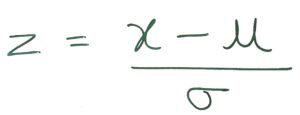 z = (x - μ) / σ